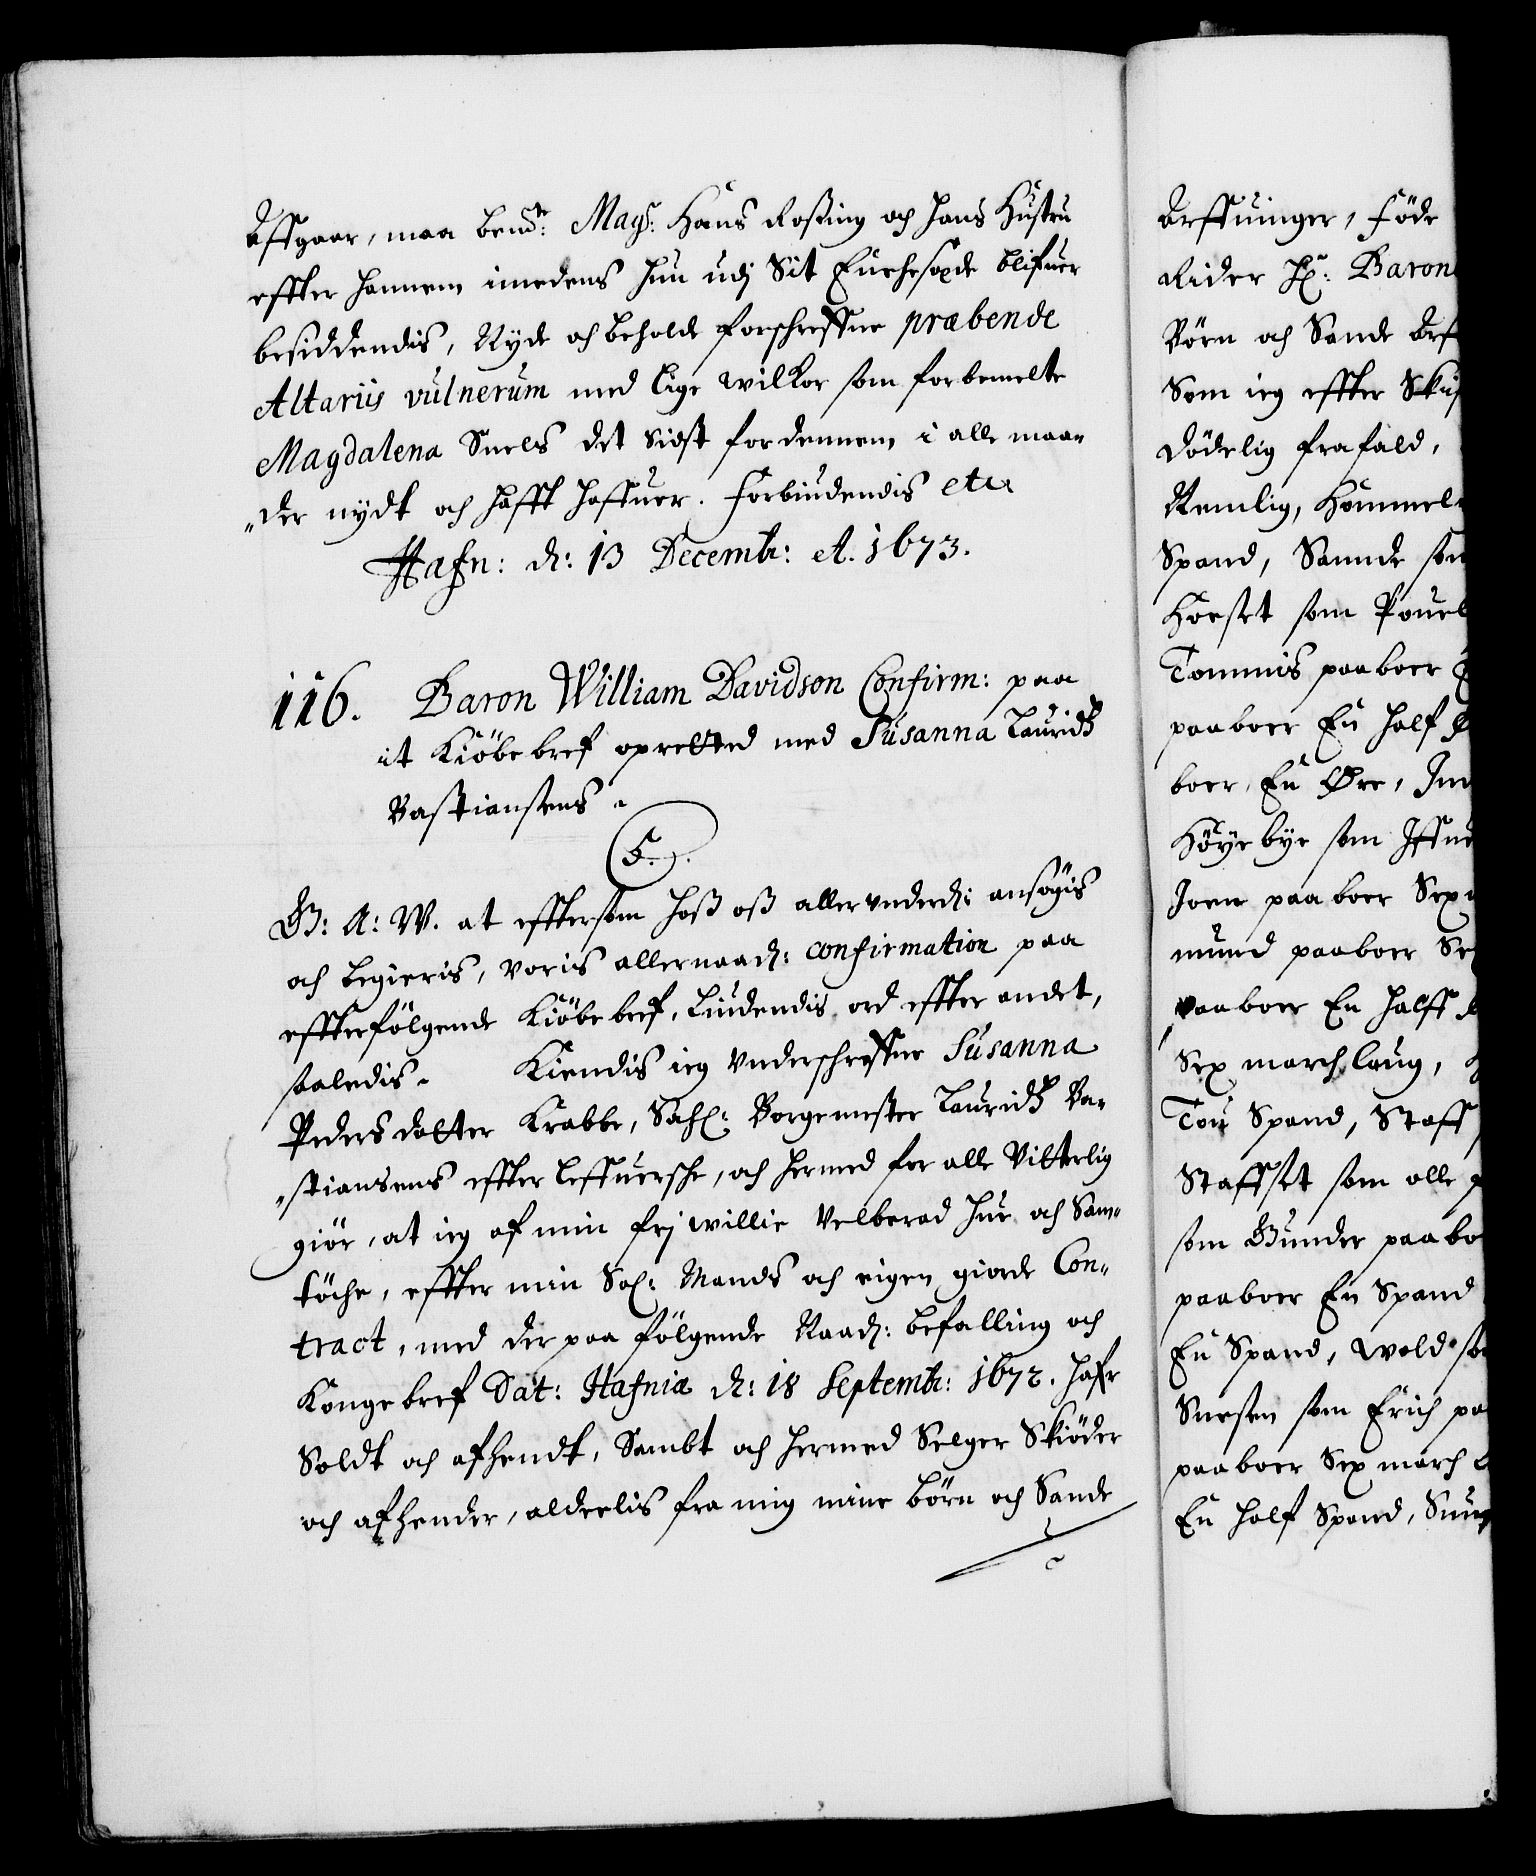 Affgaar, maa bemte: Magr: Hans Rosing och hans Hustru
effter hannem imedens hun udj Sit Enchesæde blifuer
besiddendis, Nyde och beholde forschreffne præbende
Altariis vulnerum med lige wilkor som forbemelte
Magdalena Snels det sidst for dennem i alle maa„
„der nydt och hafft haffuer. Forbiudendis etc
Hafn: d: 13 Decembr: A. 1673.
116. Baron William Davidson Confirm: paa
it Kiöbebref opretted med Susanna Lauridtz
Bastiansens.
5.
G: A: W. at efftersom hoß oß allerunderd: ansögis
och begieris, voris allernaad: confirmation paa
effterfölgende Kiöbebref, Liudendis ord effter andet,
saaledis. Kiendis ieg Underschreffne Susanna
Pedersdatter Krabbe, Sahl: Borgemester Lauridtz Ba„
„stiansens effterleffuersche, och hermed for alle Vitterlig
giör, at ieg af min frj willie Velberad hue och Sam„
töche, effter min Sal: Mands och eigen giorde Con„
tract, med der paa fölgende Naad: befalling och
Kongebref Dat: Hafniæ d: 18 Septembr: 1672. hafr
Soldt och afhendt, Sambt och hermed Selger Skiöder
och afhender, alderlis fra mig mine börn och Sande
Arffuinger, Föde
Rider Hr: Baron
Börn och Sande Arf
Som ieg effter Skif
dödelig frafald,
Nemlig, Hommel
Spand, Sannde som
Horset som Pouel
Tommis paaboer
paaboer En half
boer, En Øre,
Höyebye som
Joen paaboer Sex
mund paaboer Se
paaboer En halff
Sex march laug,
Tou Spand, Staff
Staffset som olle
som Gunder paabo
paaboer En Spand
En Spand, Wold so
Snesen som Erich pa
paaboer Sex march
En half Spand,